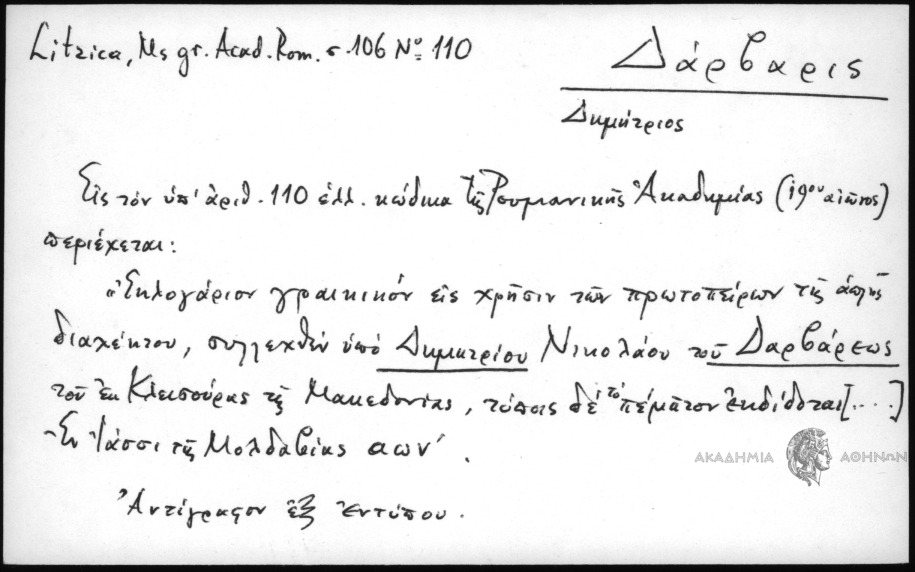 Litzica, Ms gr. Acad. Rom. σ. 106 Νº 110
Δάρβαρις
Δημήτριος
Εἰς τὸν ὑπ' ἀριθ. 110 ἑλλ. κώδικα τῆς Ρουμανικῆς Ἀκαδημίας (ιθου αἰῶνος)
περιέχεται:
«Ἐκλογάριον γραικικὸν εἰς χρῆσιν τῶν πρωτοπείρων τῆς ἁπλῆς
διαλέκτου, συλλεχθὲν ὑπὸ Δημητρίου Νικολάου τοῦ Δαρβάρεως
τοῦ ἐκ Κλεισούρας τῆς Μακεδονίας, τύποις δὲ τὸ πέμπτον ἐκδίδοται [....]
Ἐν Ἰάσσι τῆς Μολδαβίας αων΄.
Ἀντίγραφον ἐξ ἐντύπου.
ΑΚΑΔΗΜΙΑ ΑΘΗΝΩΝ